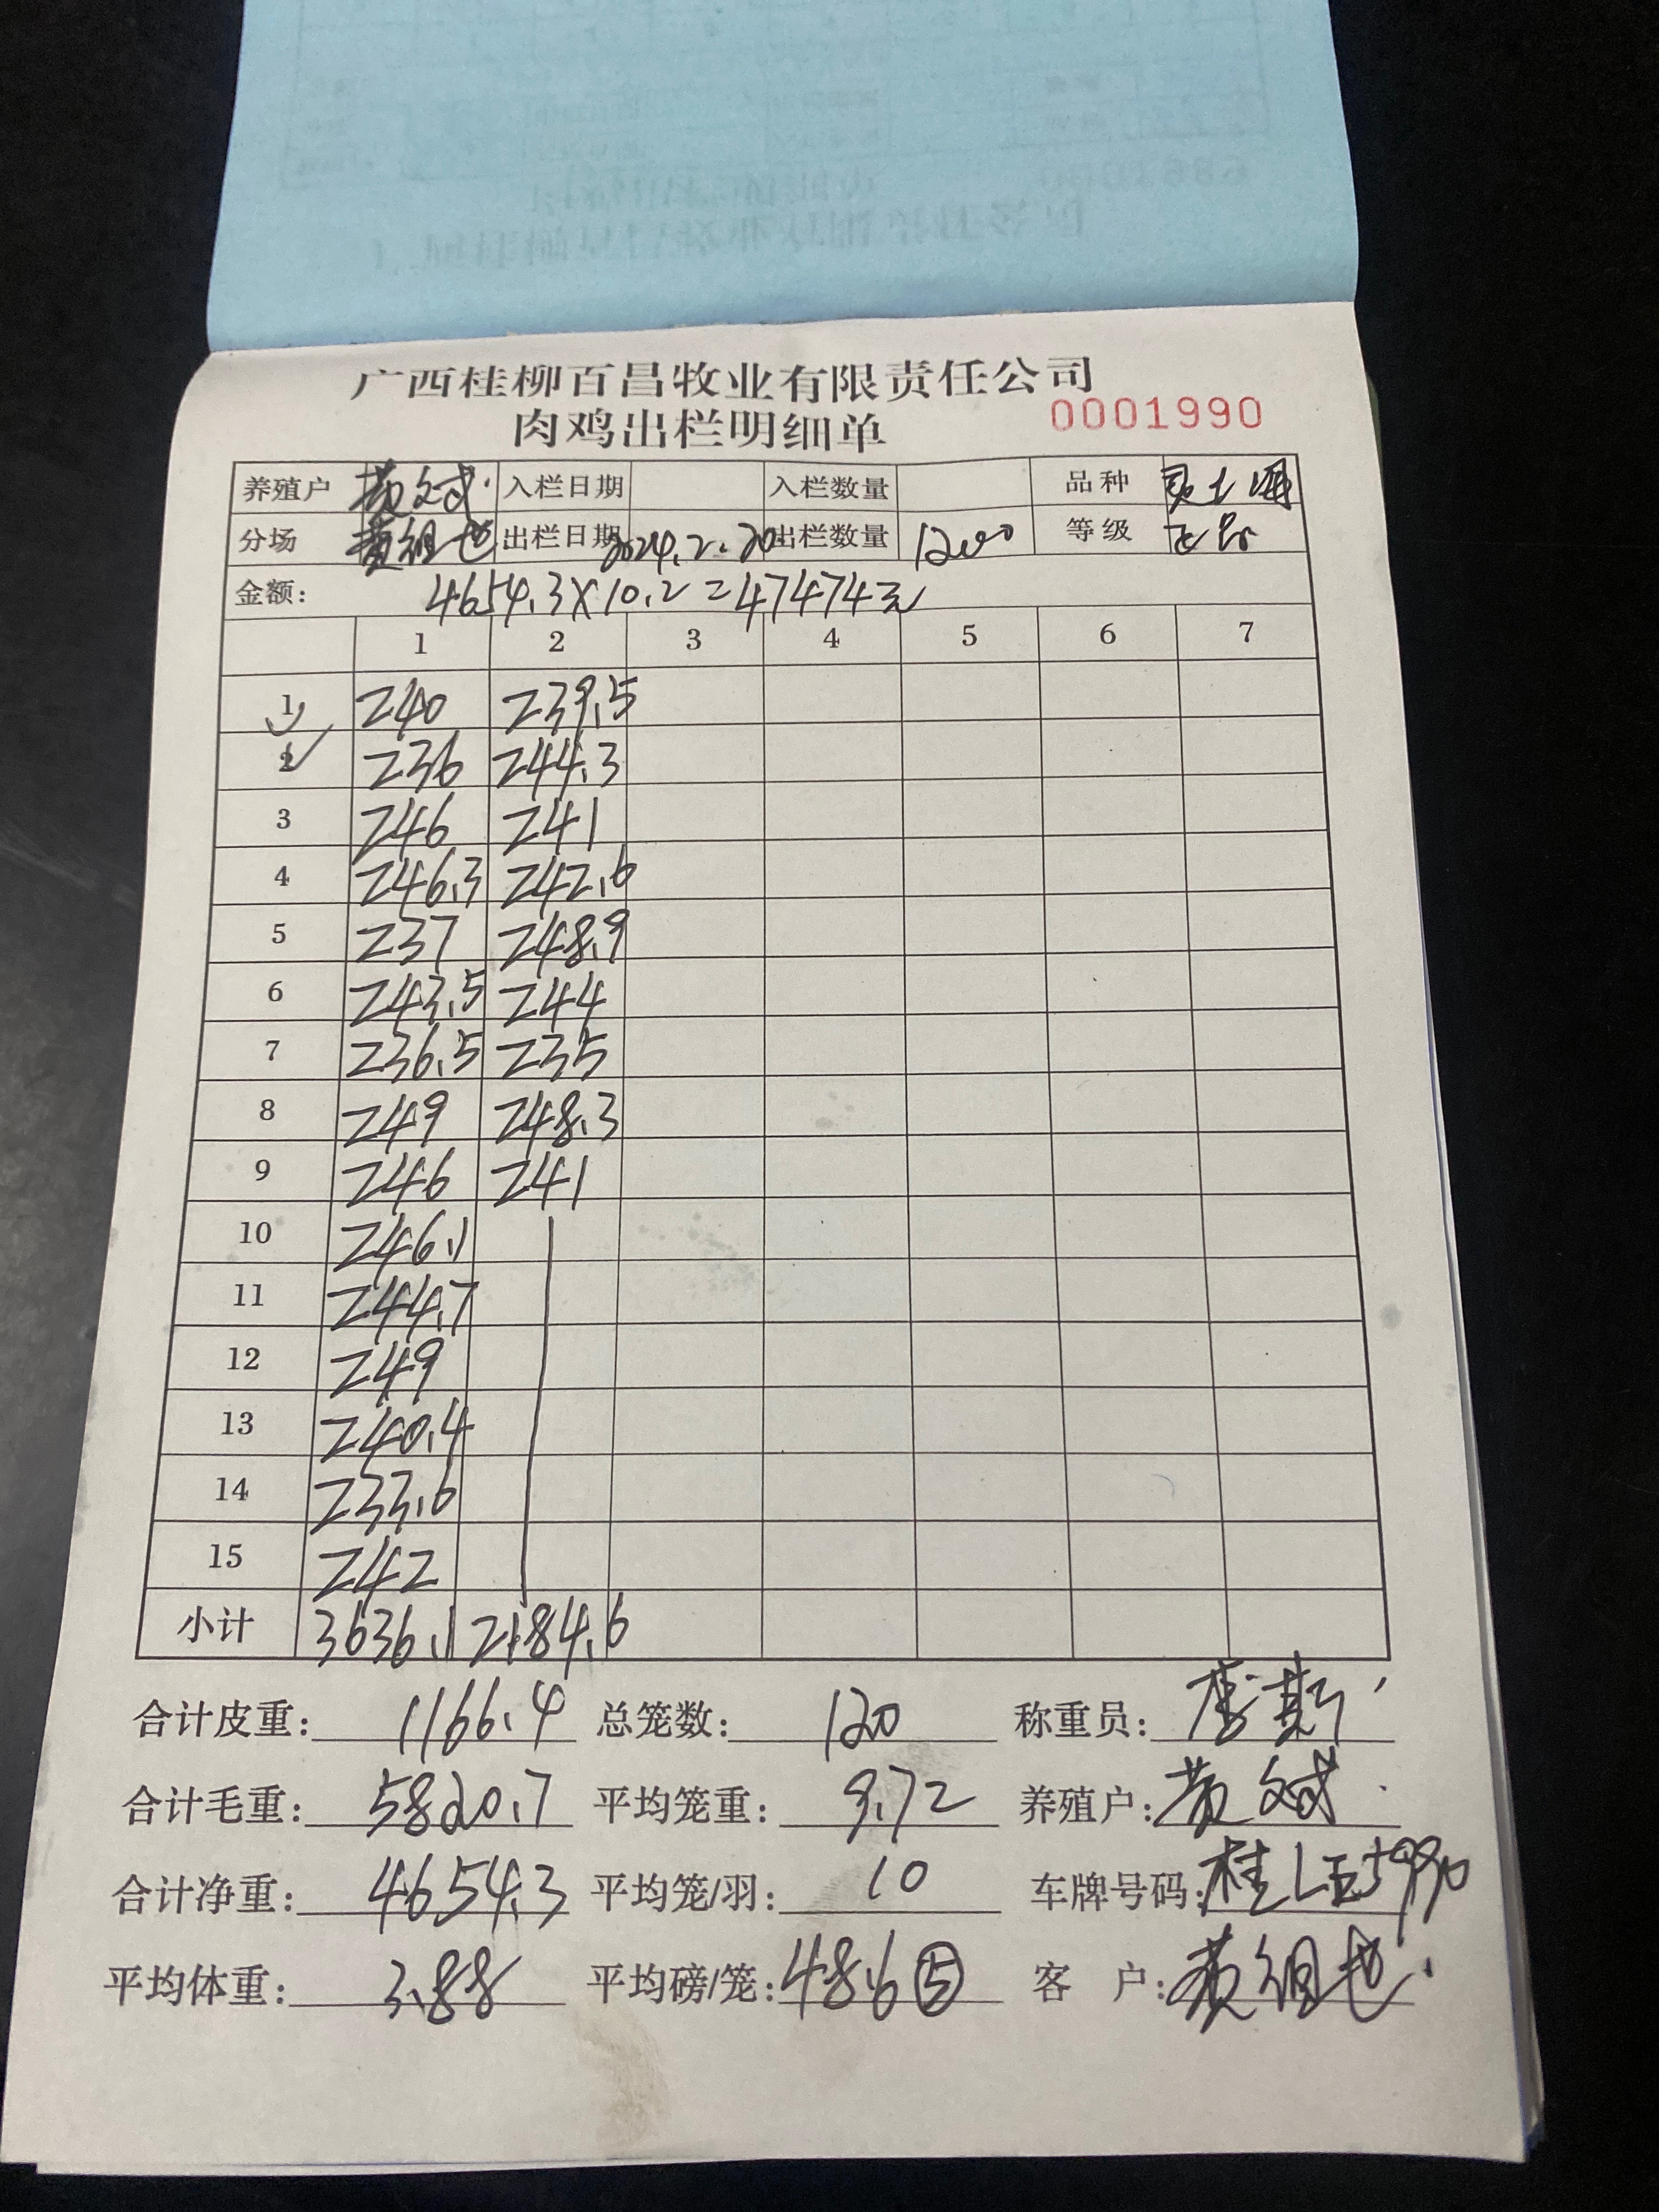 广西桂柳百昌牧业有限责任公司
肉鸡出栏明细单 0001990
养殖户 黄文斌 入栏日期 入栏数量 品种 土
分场 黄 出栏日期 2024.2.20 出栏数量 1200 等级 正品
金额: 4654.3×10.2=47474元
1 2 3 4 5 6 7
1 240 239.5
2 236 244.3
3 246 241
4 246.3 242.6
5 237 248.9
6 243.5 244
7 236.5 235
8 249 248.3
9 246 241
10 246.1
11 244.7
12 249
13 240.4
14 233.6
15 242
小计 3636.1 2184.6
合计皮重: 1166.4 总笼数: 120 称重员: 李斯
合计毛重: 5820.7 平均笼重: 9.72 养殖户: 黄文斌
合计净重: 4654.3 平均笼/羽: 10 车牌号码: 桂L
平均体重: 3.88 平均磅/笼: 48.6 ⑤ 客 户: 黄